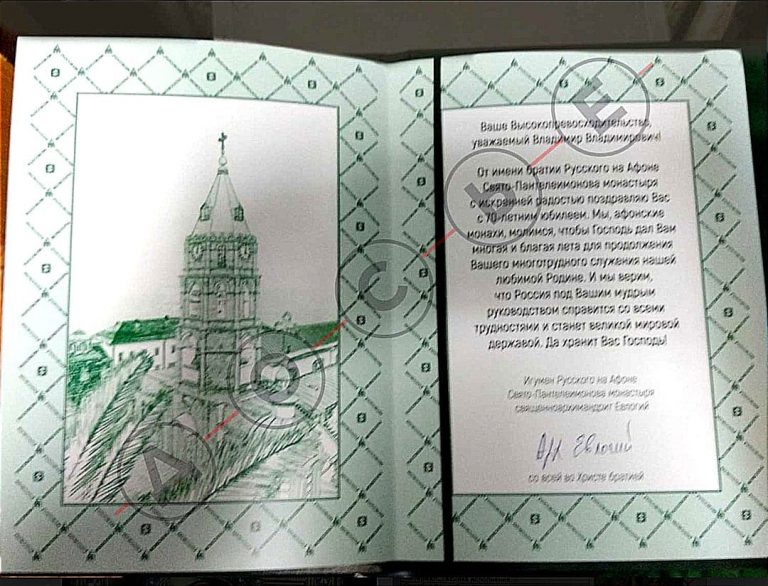 Ваше Высокопревосходительство,
уважаемый Владимир Владимирович!
От имени братии Русского на Афоне
Свято-Пантелеимонова монастыря
с искренней радостью поздравляю Вас
с 70-летним юбилеем. Мы, афонские
монахи, молимся, чтобы Господь дал Вам
многая и благая лета для продолжения
Вашего многотрудного служения нашей
любимой Родине. И мы верим,
что Россия под Вашим мудрым
руководством справится со всеми
трудностями и станет великой мировой
державой. Да хранит Вас Господь!
Игумен Русского на Афоне
Свято-Пантелеимонова монастыря
священноархимандрит Евлогий
Евлогий
со всей во Христе братией